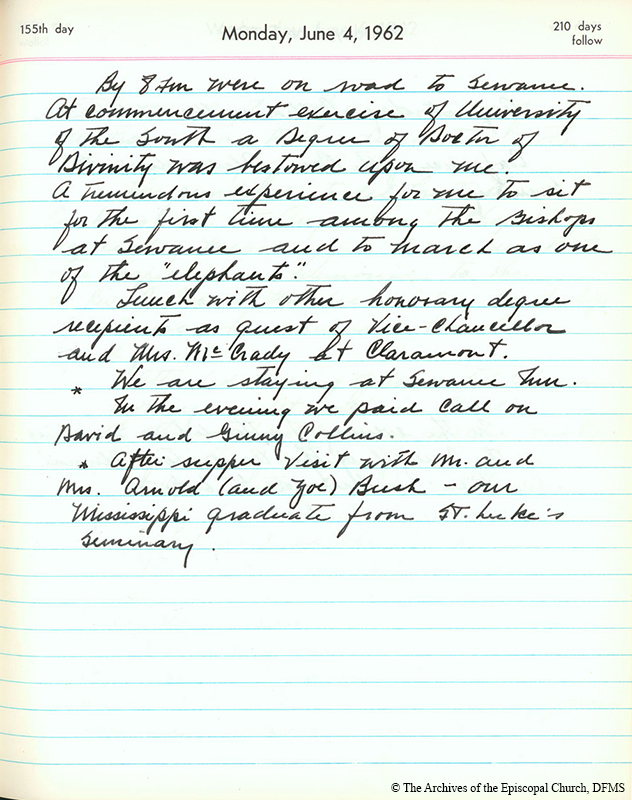 155th day
Monday, June 4, 1962
210 days
follow
By 8 Am were on road to Sewanee.
At commencement exercise of University
of the South a Degree of Doctor of
Divinity was bestowed upon me.
A tremendous experience for me to sit
for the first time among the Bishops
at Sewanee and to march as one
of the "elephants".
Lunch with other honorary degree
recipients as guest of Vice-Chancellor
and Mrs. McCrady at Claramont.
* We are staying at Sewanee Inn.
In the evening we paid call on
David and Ginny Collins.
* After supper visit with Mr. and
Mrs. Arnold (and Zoe) Bush - our
Mississippi graduate from St. Luke's
Seminary.
© The Archives of the Episcopal Church, DFMS